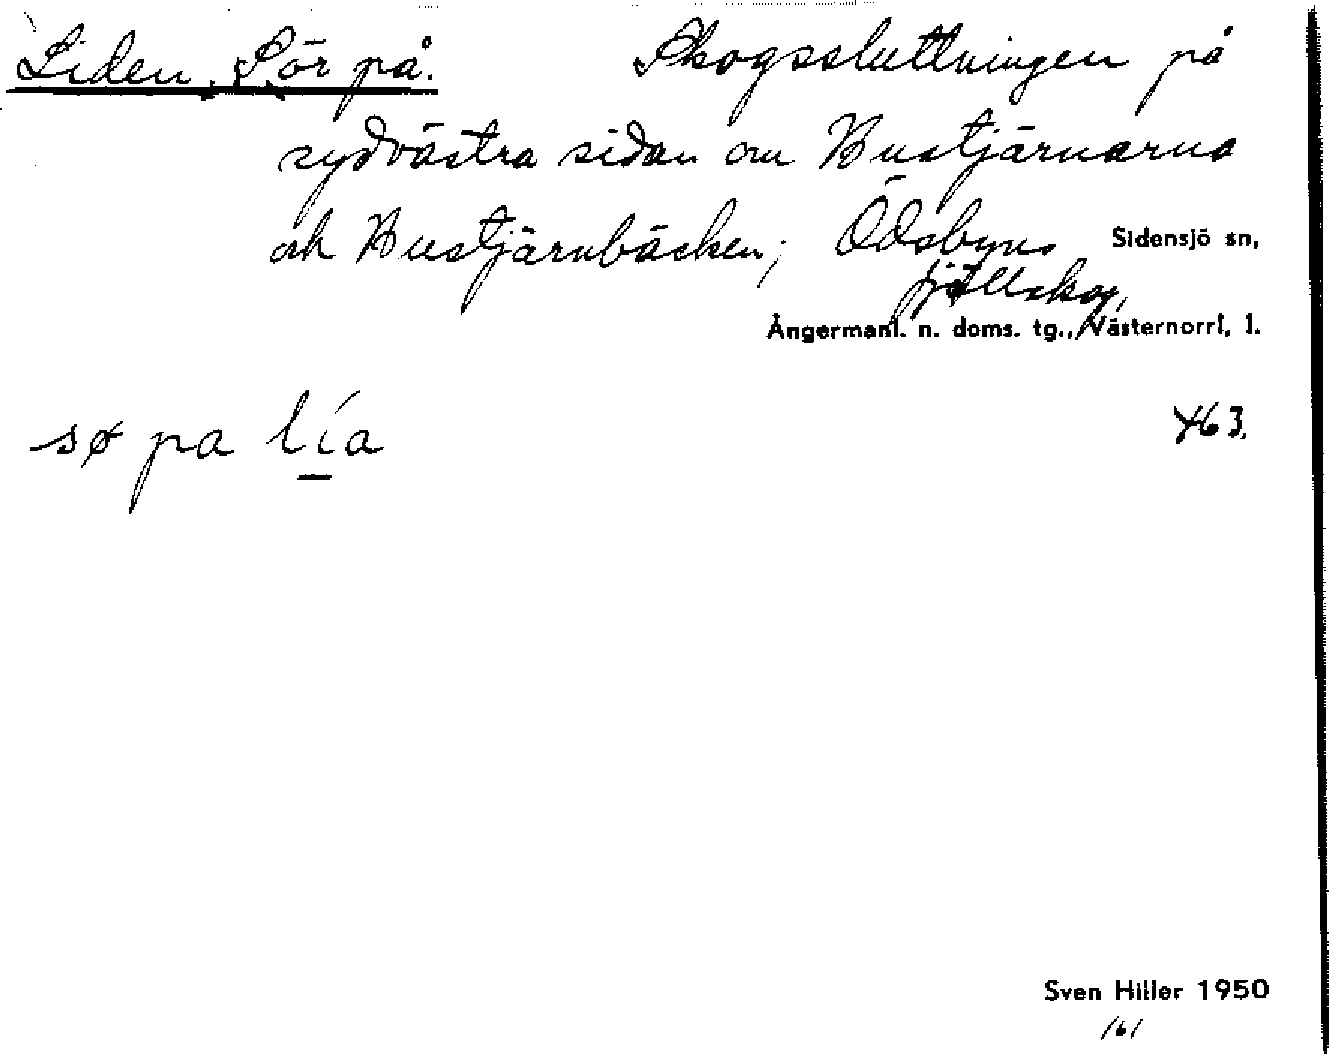 Liden, Sör på. Skogssluttningen på
sydvästra sidan om Bustjärnarna
och Bustjärnbäcken; Ödsbyns Sidensjö sn,
fjällskog,
Ångermanl. n. doms. tg., Västernorrl. l.
sø pa lía 463.
Sven Hiller 1950
161